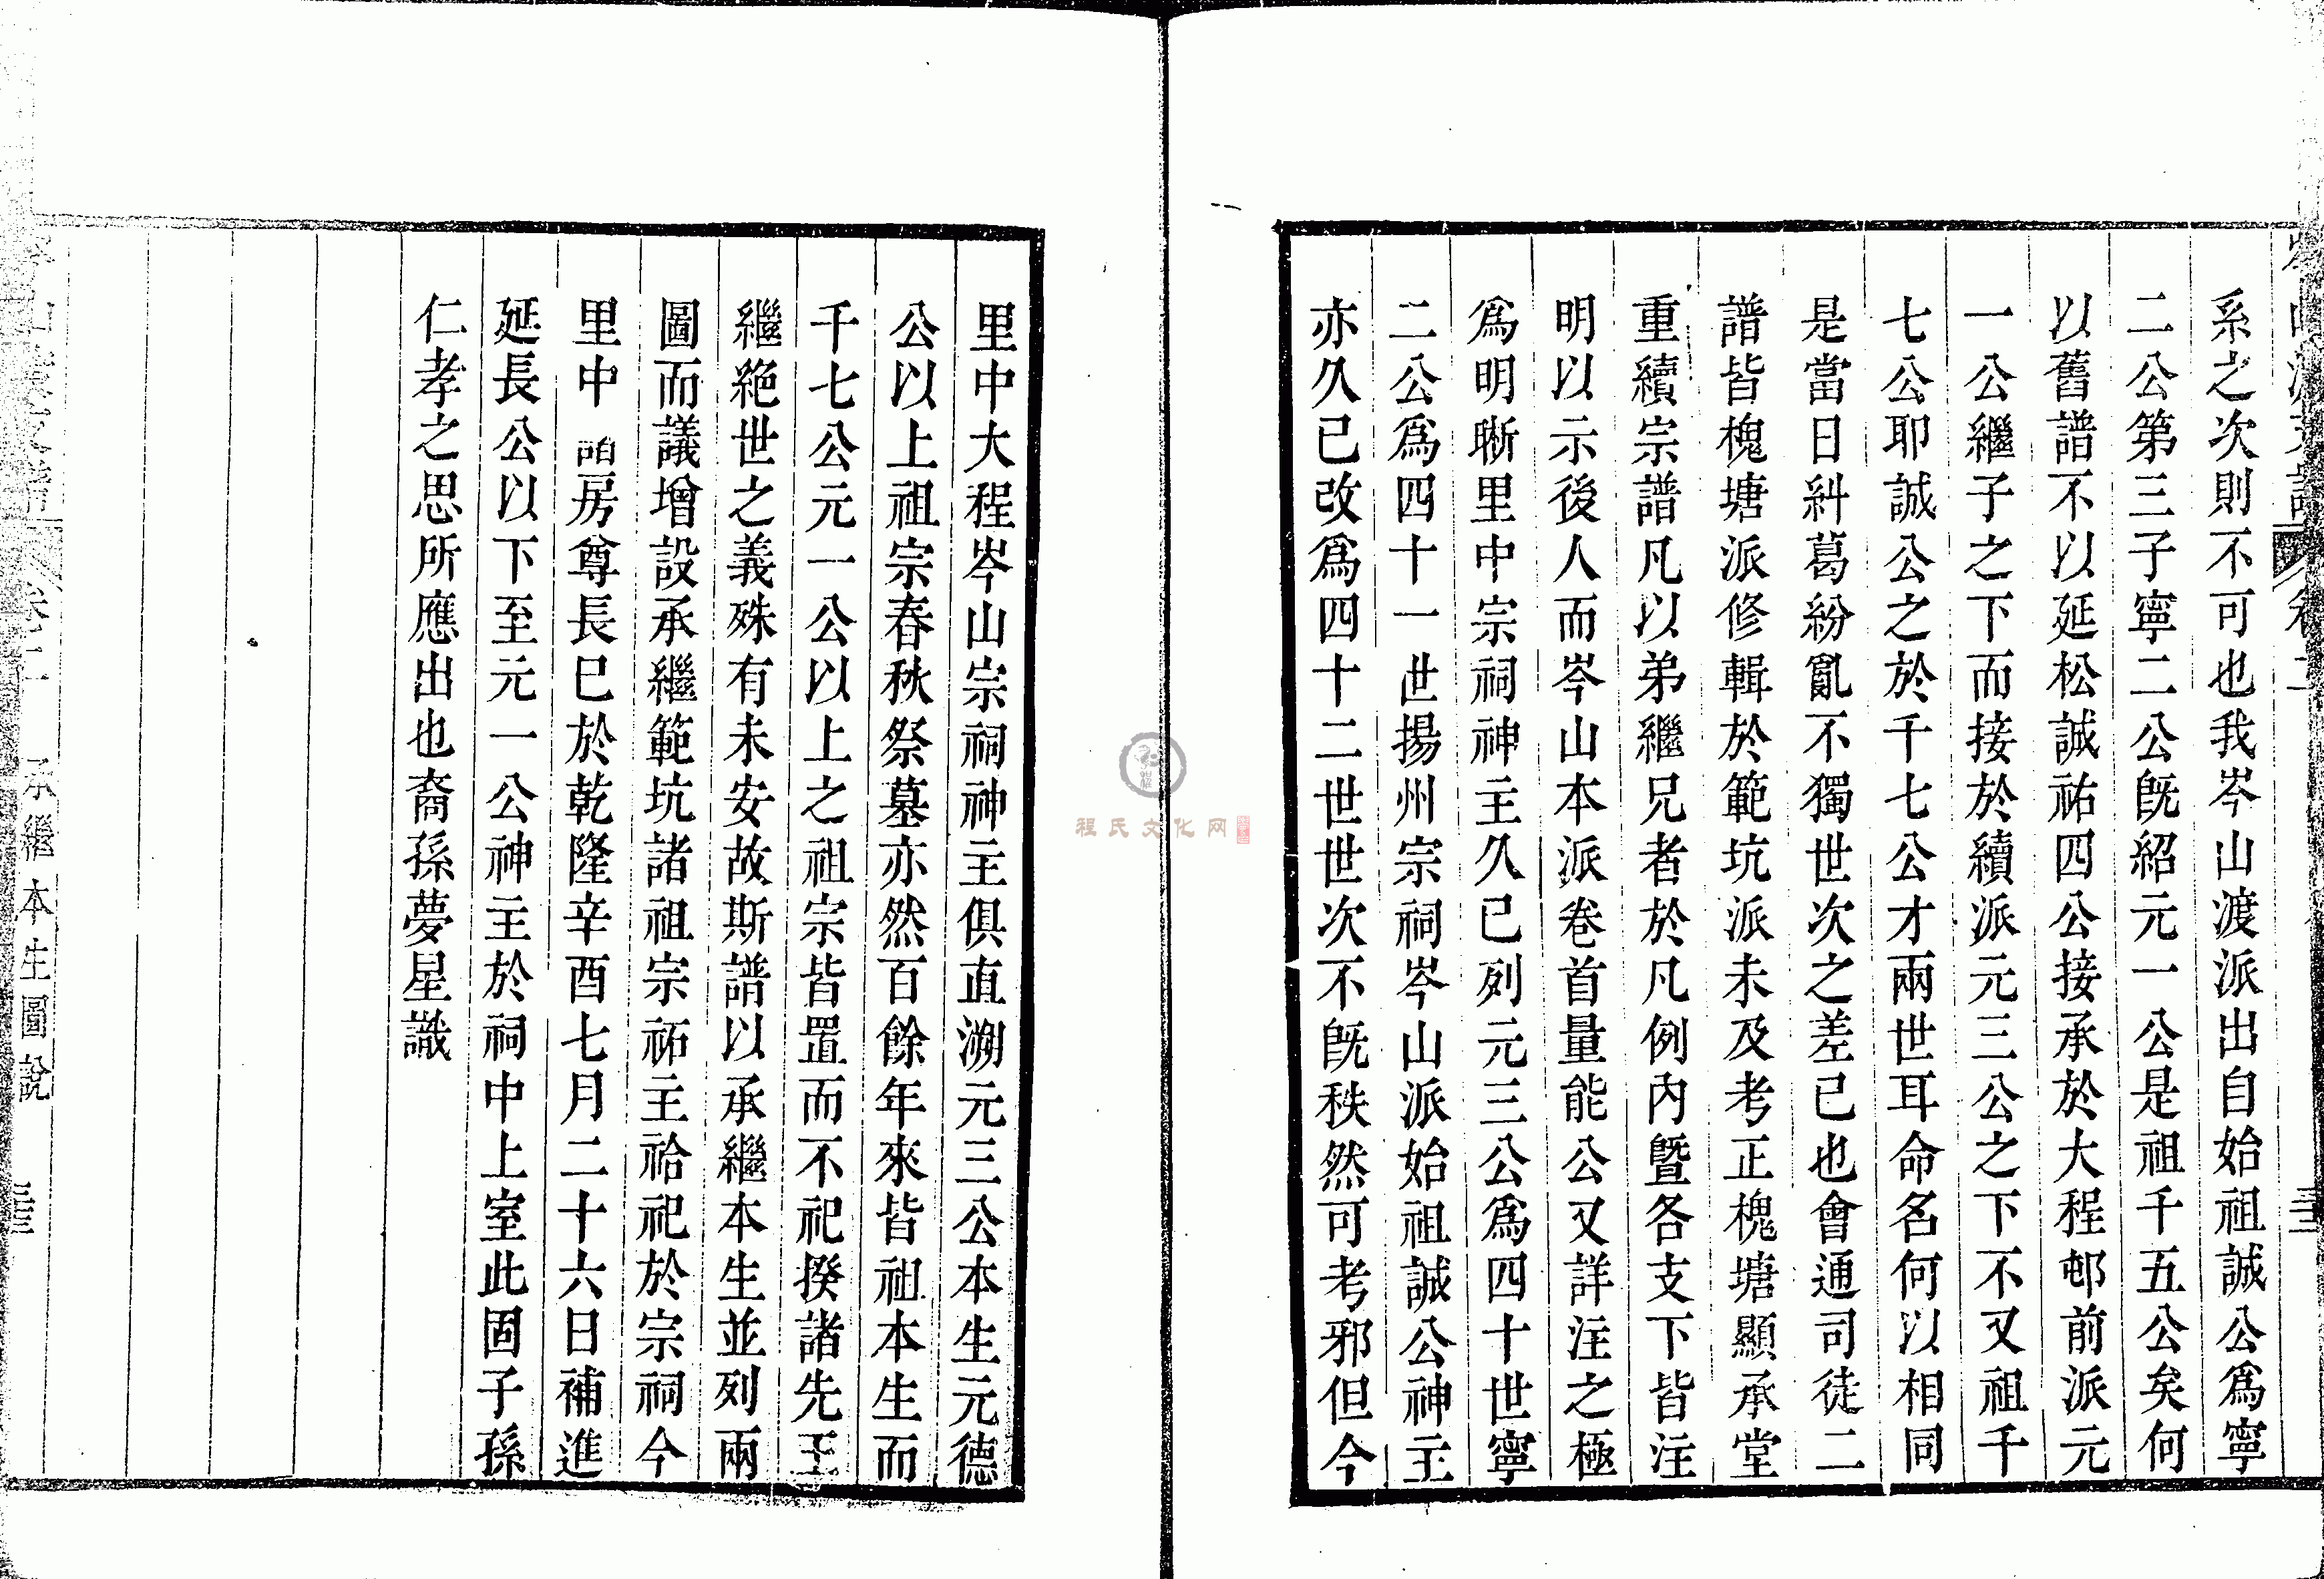 系之次則不可也我岑山渡派出自始祖誠公爲寧
二公第三子寧二公旣紹元一公是祖千五公矣何
以舊譜不以延松誠祐四公接承於大程邨前派元
一公繼子之下而接於續派元三公之下不又祖千
七公耶誠公之於千七公才兩世耳命名何以相同
是當日糾葛紛亂不獨世次之差已也會通司徒二
譜皆槐塘派修輯於範坑派未及考正槐塘顯承堂
重續宗譜凡以弟繼兄者於凡例內曁各支下皆注
明以示後人而岑山本派卷首量能公又詳注之極
爲明晰里中宗祠神主久已列元三公爲四十世寧
二公爲四十一世揚州宗祠岑山派始祖誠公神主
亦久已改爲四十二世世次不旣秩然可考邪但今
里中大程岑山宗祠神主俱直溯元三公本生元德
公以上祖宗春秋祭墓亦然百餘年來皆祖本生而
千七公元一公以上之祖宗皆置而不祀揆諸先王
繼絶世之義殊有未安故斯譜以承繼本生並列兩
圖而議增設承繼範坑諸祖宗祏主祫祀於宗祠今
里中諸房尊長已於乾隆辛酉七月二十六日補進
延長公以下至元一公神主於祠中上室此固子孫
仁孝之思所應出也裔孫夢星識
卷二 承繼本生圖說
程氏文化网